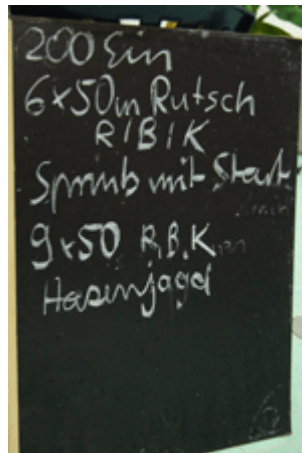 200 Ein
6x50m Rutsch
R/B/K
Sprints mit Start
9x50 R.B.K
Hasenjagd